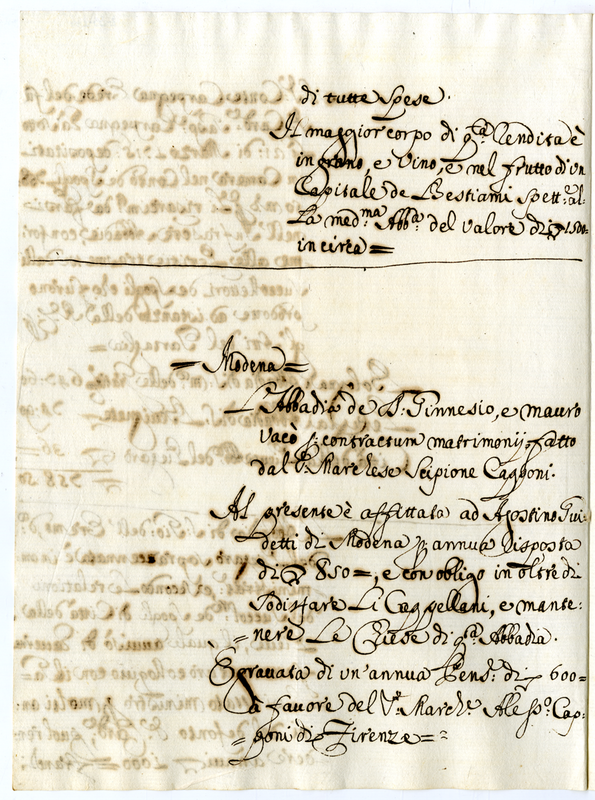 di tutte Spese.
Il maggior corpo di q.ta Rendita è
in grano, e Vino, e nel frutto d'un
Capitale de Bestiami Spett.e al-
La med.ma Abb.a del valore di 1500-
in circa =
= Modena =
L'Abbadia de S. Ginnesio, e mauro
Vacò p. contractum matrimonij fatto
dal S. Marchese Scipione Capponi.
Al presente è affittata ad Agostino Gui-
detti di Modena p annua Risposta
di 850 =, e con obligo in oltre di
Sodisfare Li Cappellani, e mante-
= nere Le Chiese di q.ta Abbadia.
È gravata di un' annua Pens.e di 600=
à favore del S.r March.e Aless.o Cap-
= poni di Firenze =